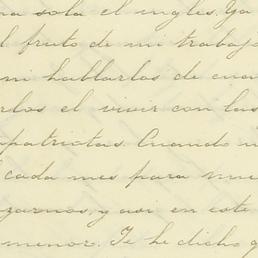 na sola el ingles. Ya
l fruto de mi trabajo
ni hablarlos de cua
rlos el vivir con las
patriotas. Cuando
cada mes para
zarnos, y asi en este
menor. Te he dicho q